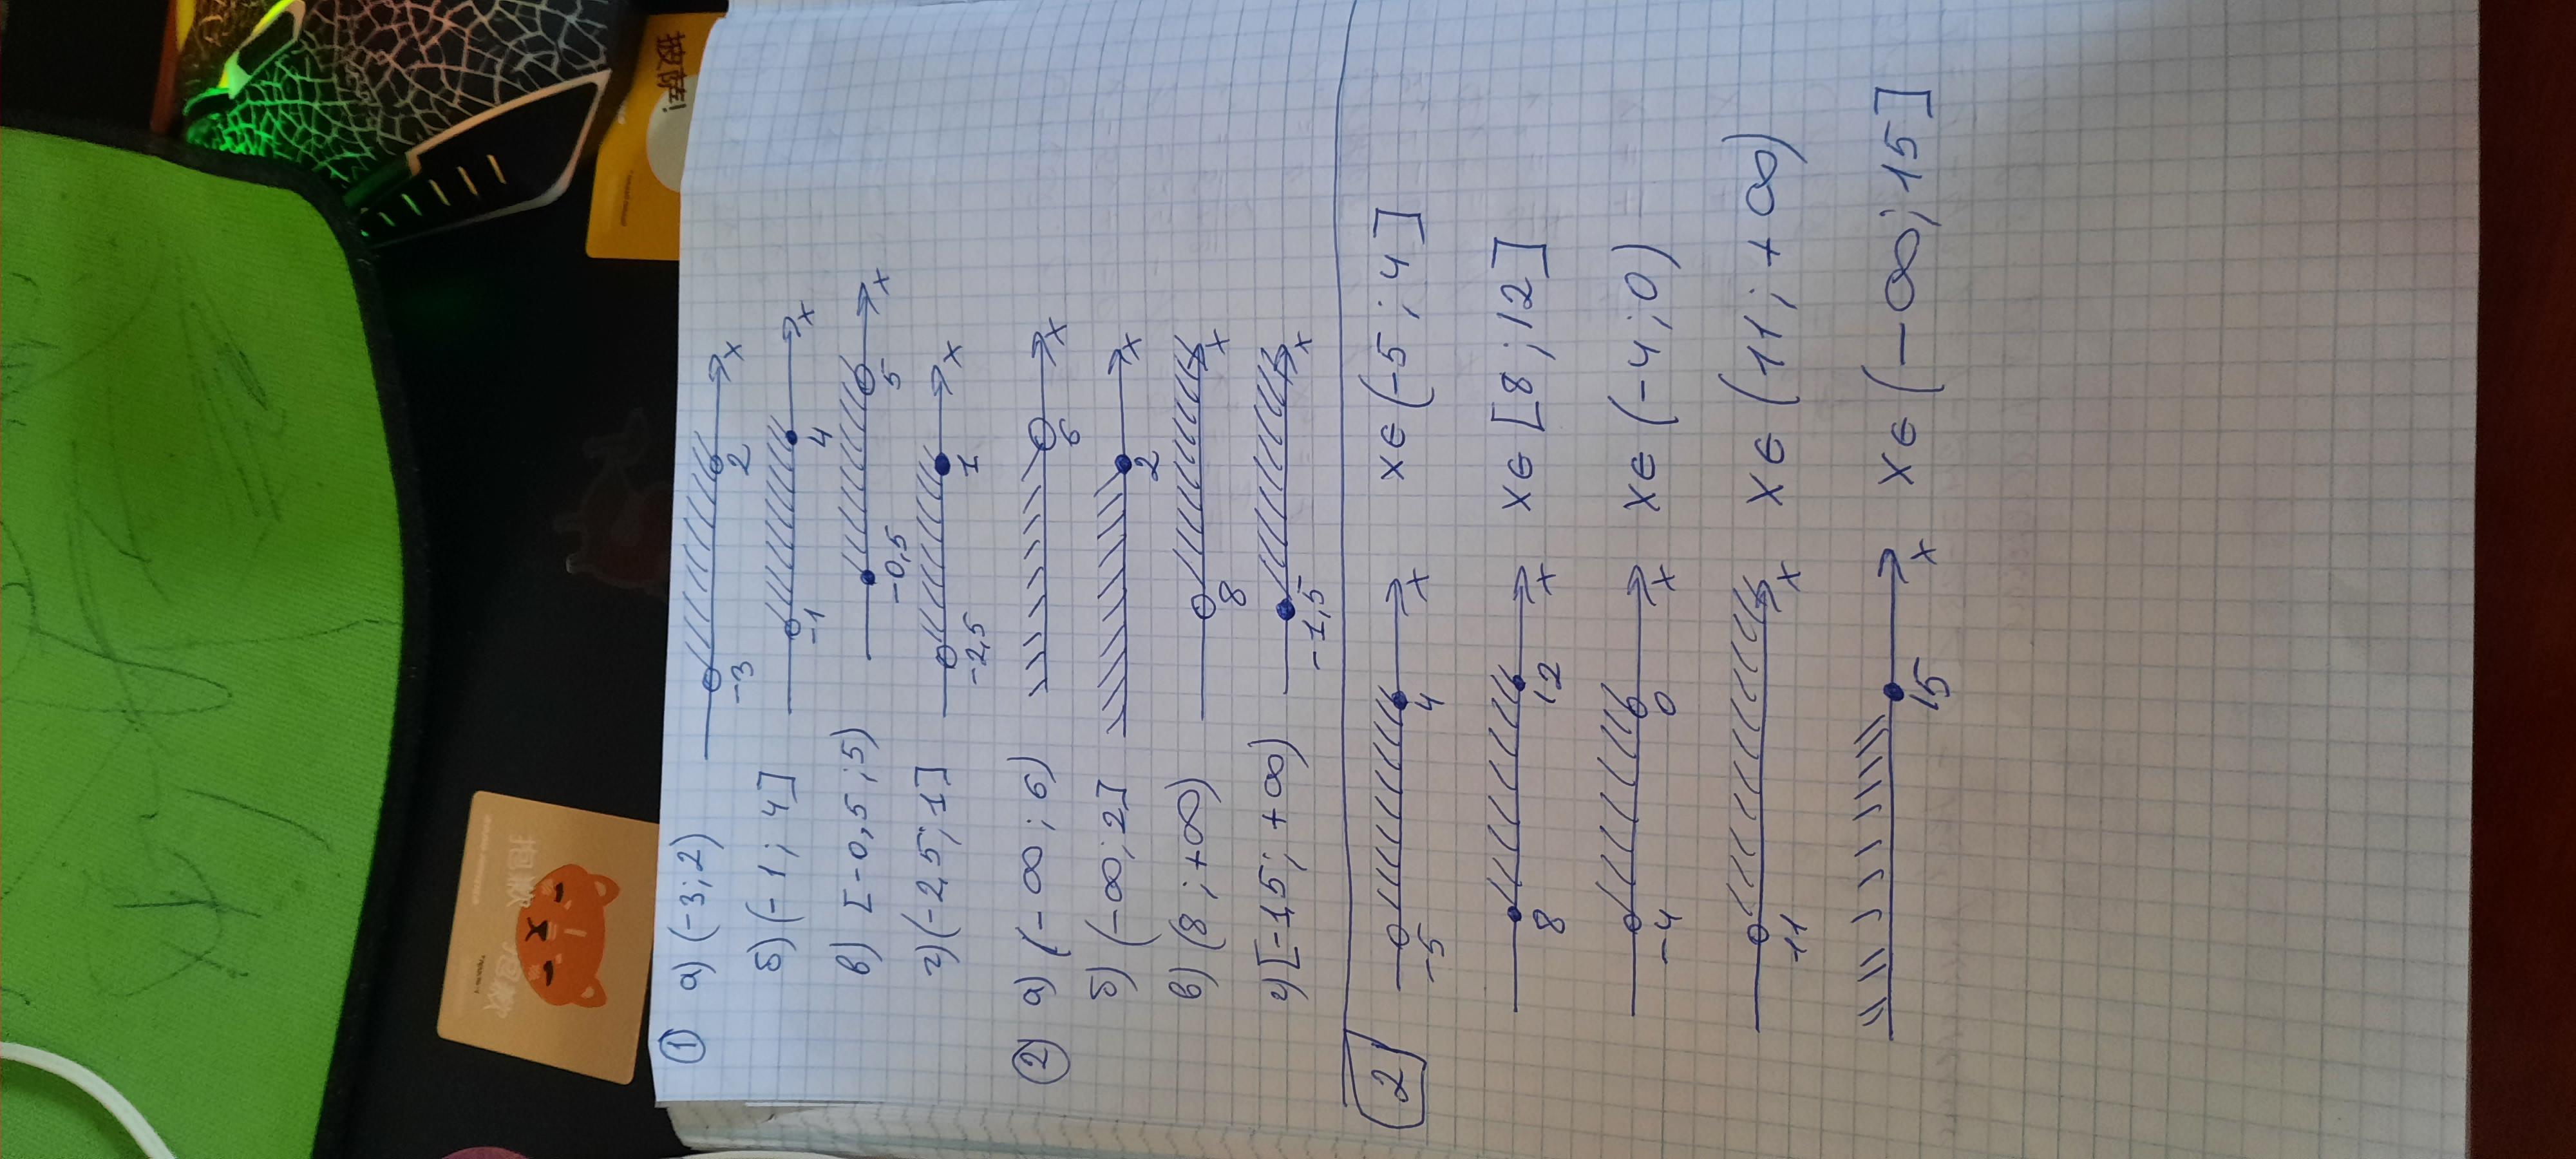 ① а) (-3; 2) -3 2 x
б) (-1; 4] -1 4 x
в) [-0,5; 5) -0,5 5 x
г) (-2,5; 1] -2,5 1 x
② а) (-∞; 6) 6 x
б) (-∞; 2] 2 x
в) (8; +∞) 8 x
г) [-1,5; +∞) -1,5 x
2 -5 4 x x∈(-5; 4]
8 12 x x∈[8; 12]
-4 0 x x∈(-4; 0)
-11 x x∈(11; +∞)
15 x x∈(-∞; 15]
披萨!
抱歉